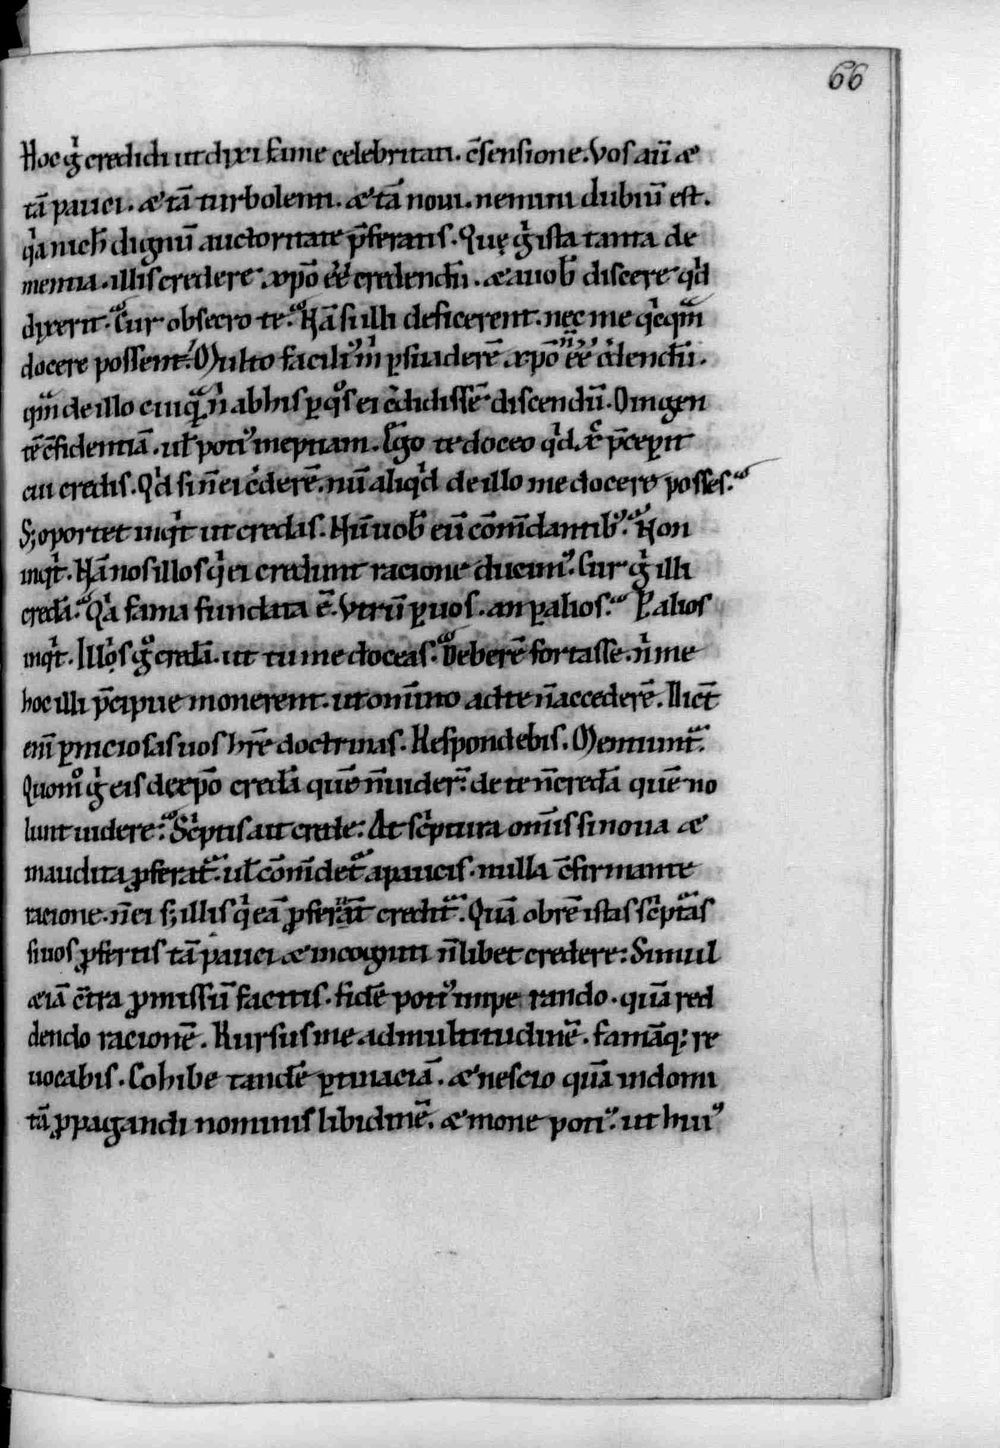 66
Hoc g̊ credidi ut dixi famę celebritati. c̄sensione. Vos aūt &
tā pauci. & tā turbolenti. & tā noui. nemini dubiū est.
q̊a nich̄ dignū auctoritate p̄feratis. Quę g̊ ista tanta de
mentia. illis crede˜. xp̄o ēē credendū. & a uob̄ discere qͥd
dixerit. Cur obsecro te. Nā si illi deficerent. nec me qͥcqͣm
docere possent. Multo faciliꝰ m̄ psuaderē xp̄o ēē c̄dendū.
qͣm de illo cuiqͣ n̄ ab his p qͦs ei c̄didissē discendū. O ingen
tē c̄fidentiā. uł potiꝰ ineptiam. Ego te doceo qͥd xp̄c p̄cepit
cui credis. Qͥd si n̄ ei c̄derē. nū aliqͥd de illo me docere posses.
S; oportet inqͥt ut credas. Nū uob̄ eū cōm̄dantibꝰ. Non
inqͥt. Nā nos illos qͥ ei credunt racione ducimꝰ. Cur g̊ illi
credā. Qͥa fama fundata ē. Vtrū p uos. an p alios. P alios
inqͥt. Illos g̊ credā. ut tu me doceas. Deberē fortasse. n̄ me
hoc illi p̄cipue monerent. ut om̄ino ad te n̄ accederē. Dic̄t
eni̅ pniciosas uos hr̄e doctrinas. Respondebis. Mentiunt̄.
Quom̊ g̊ eis de xp̄o credā quē n̄ uider̄. de te n̄ credā quē no
lunt uidere. Sc̄ptis ait crede. At sc̄ptura om̄is si noua &
inaudita pferat̄. uł cōm̄det̄ a paucis. nulla c̄firmante
racione. n̄ ei s; illis qͥ eā pferāt credit̄. Quā obrē istas sc̄ptͣas
si uos pfertis tā pauci & incogniti n̄ libet credere. Simul
&iā c̄tra pmissū facitis. fidē potiꝰ impe rando. quā red
dendo racionē. Rursus me ad multitudinē. famāq; re
uocabis. Cohibe tandē ptinaciā. & nescio quā indomi
tā ppagandi nominis libidinē. & mone potiꝰ. ut huiꝰ